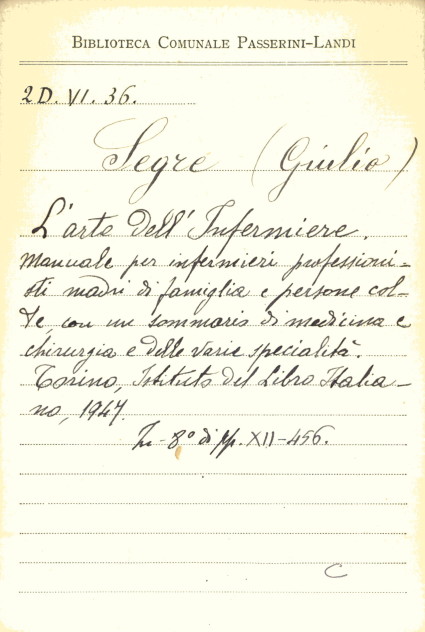 BIBLIOTECA COMUNALE PASSERINI-LANDI
2D. VI. 36.
Segre (Giulio)
L'arte dell'Infermiere.
Manuale per infermieri professioni-
sti madri di famiglia e persone col-
te, con un sommario di medicina e
chirurgia e delle varie specialità.
Torino, Istituto del Libro Italia-
no, 1947.
In-8° di pp. XII-456.
C